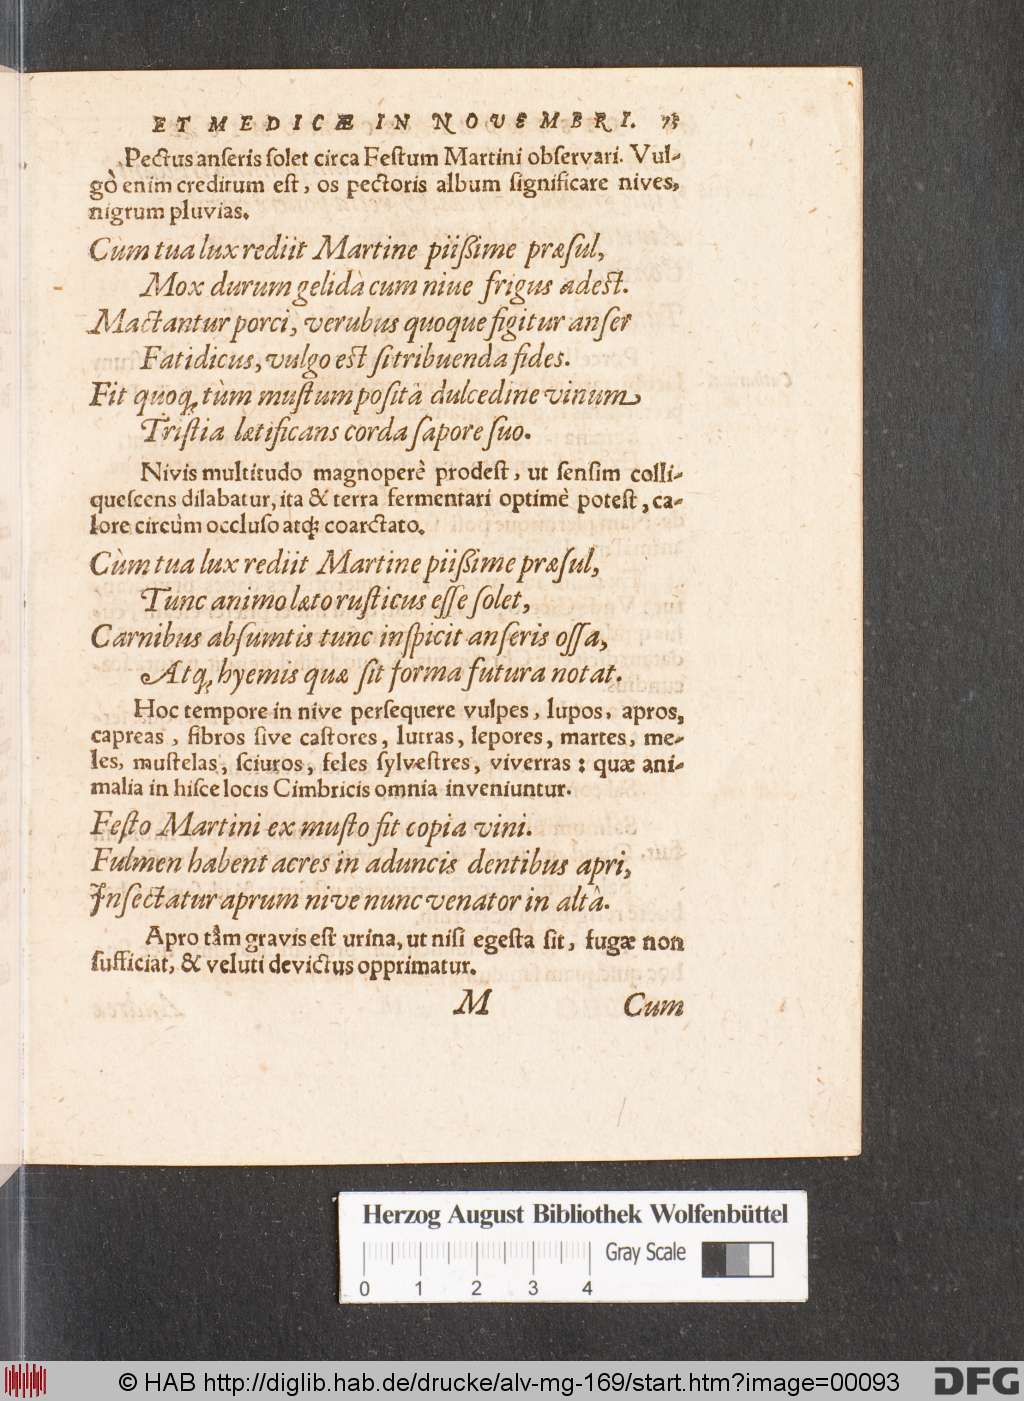 ET MEDICÆ IN NOVEMBRI. 73
Pectus anſeris ſolet circa Feſtum Martini obſervari. Vul-
gò enim creditum eſt, os pectoris album ſignificare nives,
nigrum pluvias.
Cùm tua lux rediit Martine piißime præſul,
Mox durum gelidà cum niue frigus adest.
Mactantur porci, verubus quoque figitur anſer
Fatidicus, vulgo est ſi tribuenda fides.
Fit quoq; tùm muſtum poſità dulcedine vinum
Triſtia lætificans corda ſapore ſuo.
Nivis multitudo magnoperè prodeſt, ut ſenſim colli-
queſcens dilabatur, ita & terra fermentari optimè poteſt, ca-
lore circùm occluſo atq; coarctato.
Cùm tua lux rediit Martine piißime præſul,
Tunc animo læto ruſticus eſſe ſolet,
Carnibus abſumtis tunc inſpicit anſeris oſſa,
Atq; hyemis quæ ſit forma futura notat.
Hoc tempore in nive perſequere vulpes, lupos, apros,
capreas, fibros ſive caſtores, lutras, lepores, martes, me-
les, muſtelas, ſciuros, feles ſylveſtres, viverras: quæ ani-
malia in hiſce locis Cimbricis omnia inveniuntur.
Feſto Martini ex muſto fit copia vini.
Fulmen habent acres in aduncis dentibus apri,
Inſectatur aprum nive nunc venator in altà.
Apro tàm gravis eſt urina, ut niſi egeſta ſit, fugæ non
ſufficiat, & veluti devictus opprimatur.
M Cum
Herzog August Bibliothek Wolfenbüttel
Gray Scale
0 1 2 3 4
© HAB http://diglib.hab.de/drucke/alv-mg-169/start.htm?image=00093
DFG